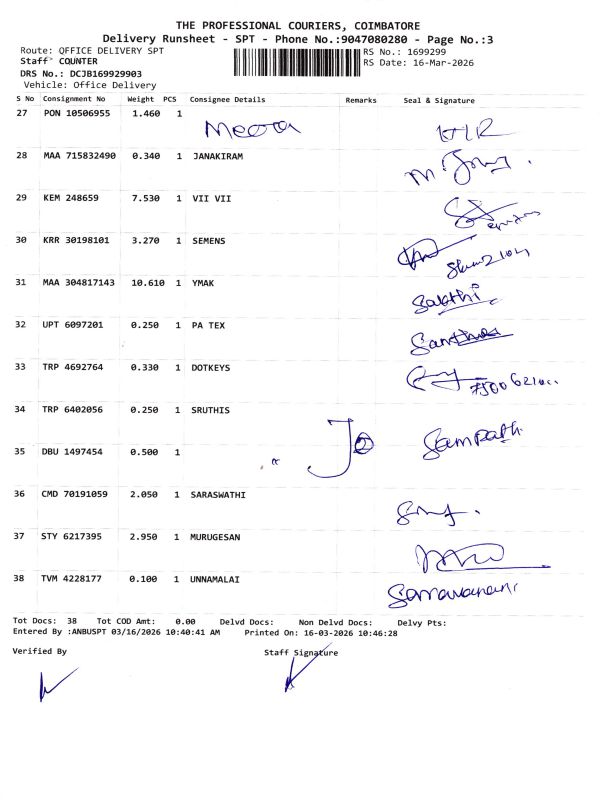 THE PROFESSIONAL COURIERS, COIMBATORE
Delivery Runsheet - SPT - Phone No.:9047080280 - Page No.:3
Route: OFFICE DELIVERY SPT
RS No.: 1699299
Staff: COUNTER
RS Date: 16-Mar-2026
DRS No.: DCJB169929903
Vehicle: Office Delivery
S No Consignment No Weight PCS Consignee Details Remarks Seal & Signature
27 PON 10506955 1.460 1 Meera
28 MAA 715832490 0.340 1 JANAKIRAM
29 KEM 248659 7.530 1 VII VII
30 KRR 30198101 3.270 1 SEMENS
31 MAA 304817143 10.610 1 YMAK Sakthi
32 UPT 6097201 0.250 1 PA TEX
33 TRP 4692764 0.330 1 DOTKEYS
34 TRP 6402056 0.250 1 SRUTHIS Sampath
35 DBU 1497454 0.500 1
36 CMD 70191059 2.050 1 SARASWATHI
37 STY 6217395 2.950 1 MURUGESAN
38 TVM 4228177 0.100 1 UNNAMALAI Saravanan
Tot Docs: 38 Tot COD Amt: 0.00 Delvd Docs: Non Delvd Docs: Delvy Pts:
Entered By :ANBUSPT 03/16/2026 10:40:41 AM Printed On: 16-03-2026 10:46:28
Verified By Staff Signature